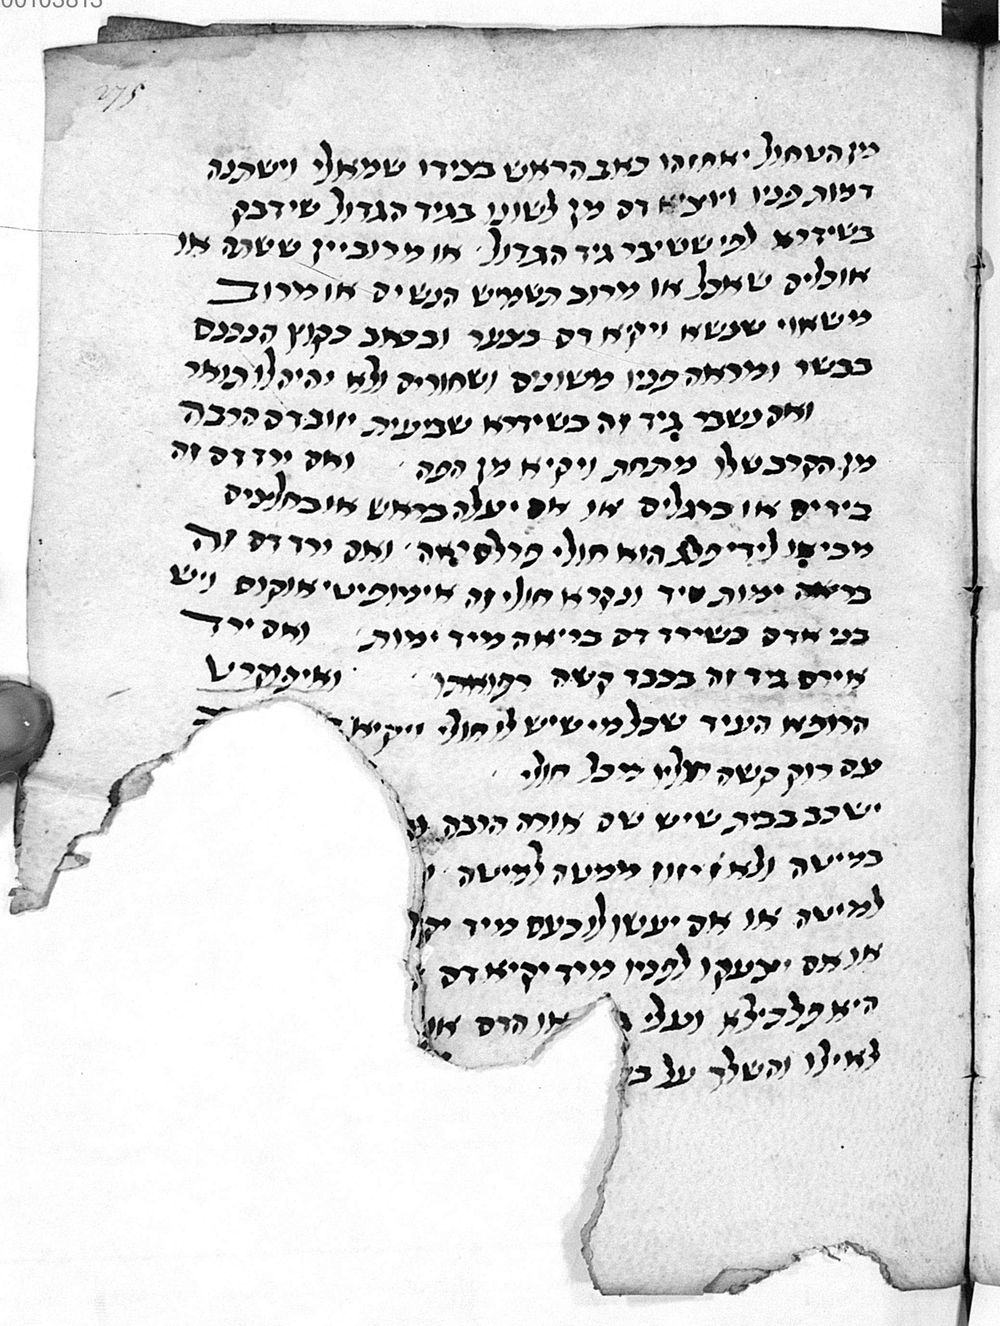 00103813
275
מן הטחול יאחזהו כאב הראש בצידו שמאלי וישתנה
דמות פניו ויוציא דם מן לשונו בגיד הגדול שידבק
בשידרא לפי ששיבר גיד הגדול או מרוב יין ששתה או
אוכלים שאכל או מרוב תשמיש הנשים או מרוב
מישאוי שנשא ויקיא דם בצער ובכאב כקוץ הנכנס
בבשר ומראה פניו משונים ושחורים ולא יהיה לו תואר
ואם נשבר גיד זה בשידרא שביעית יזוב דם הרבה
מן הקרב שלו מתחת ויקיא מן הפה ואם ירד דם זה
בידים או ברגלים או אם יעלה בראש או בחלצים
מביאו לידי הוא חולי פרלסיאה ואם ירד דם זה
בריאה ימות מיד ונקרא חולי זה אימופטי אוקוס ויש
בני אדם כשירד דם בריאה מיד ימות ואם ירד
אירס גיד זה בכבד קשה רפואתו ואיפוקרט
הרופא העיד שכל מי שיש לו חולי ויקיא
עם רוק קשה חליו מכל חולי
ישכב בבית שיש שם אורה הרבה
במיטה ולא יזוז ממטה למיטה
למיטה או אם יעשו לו כעס מיד
או אם יצעקו לפניו מיד יקיא דם
היא ועלי או הדס או
לאילו והשלך על